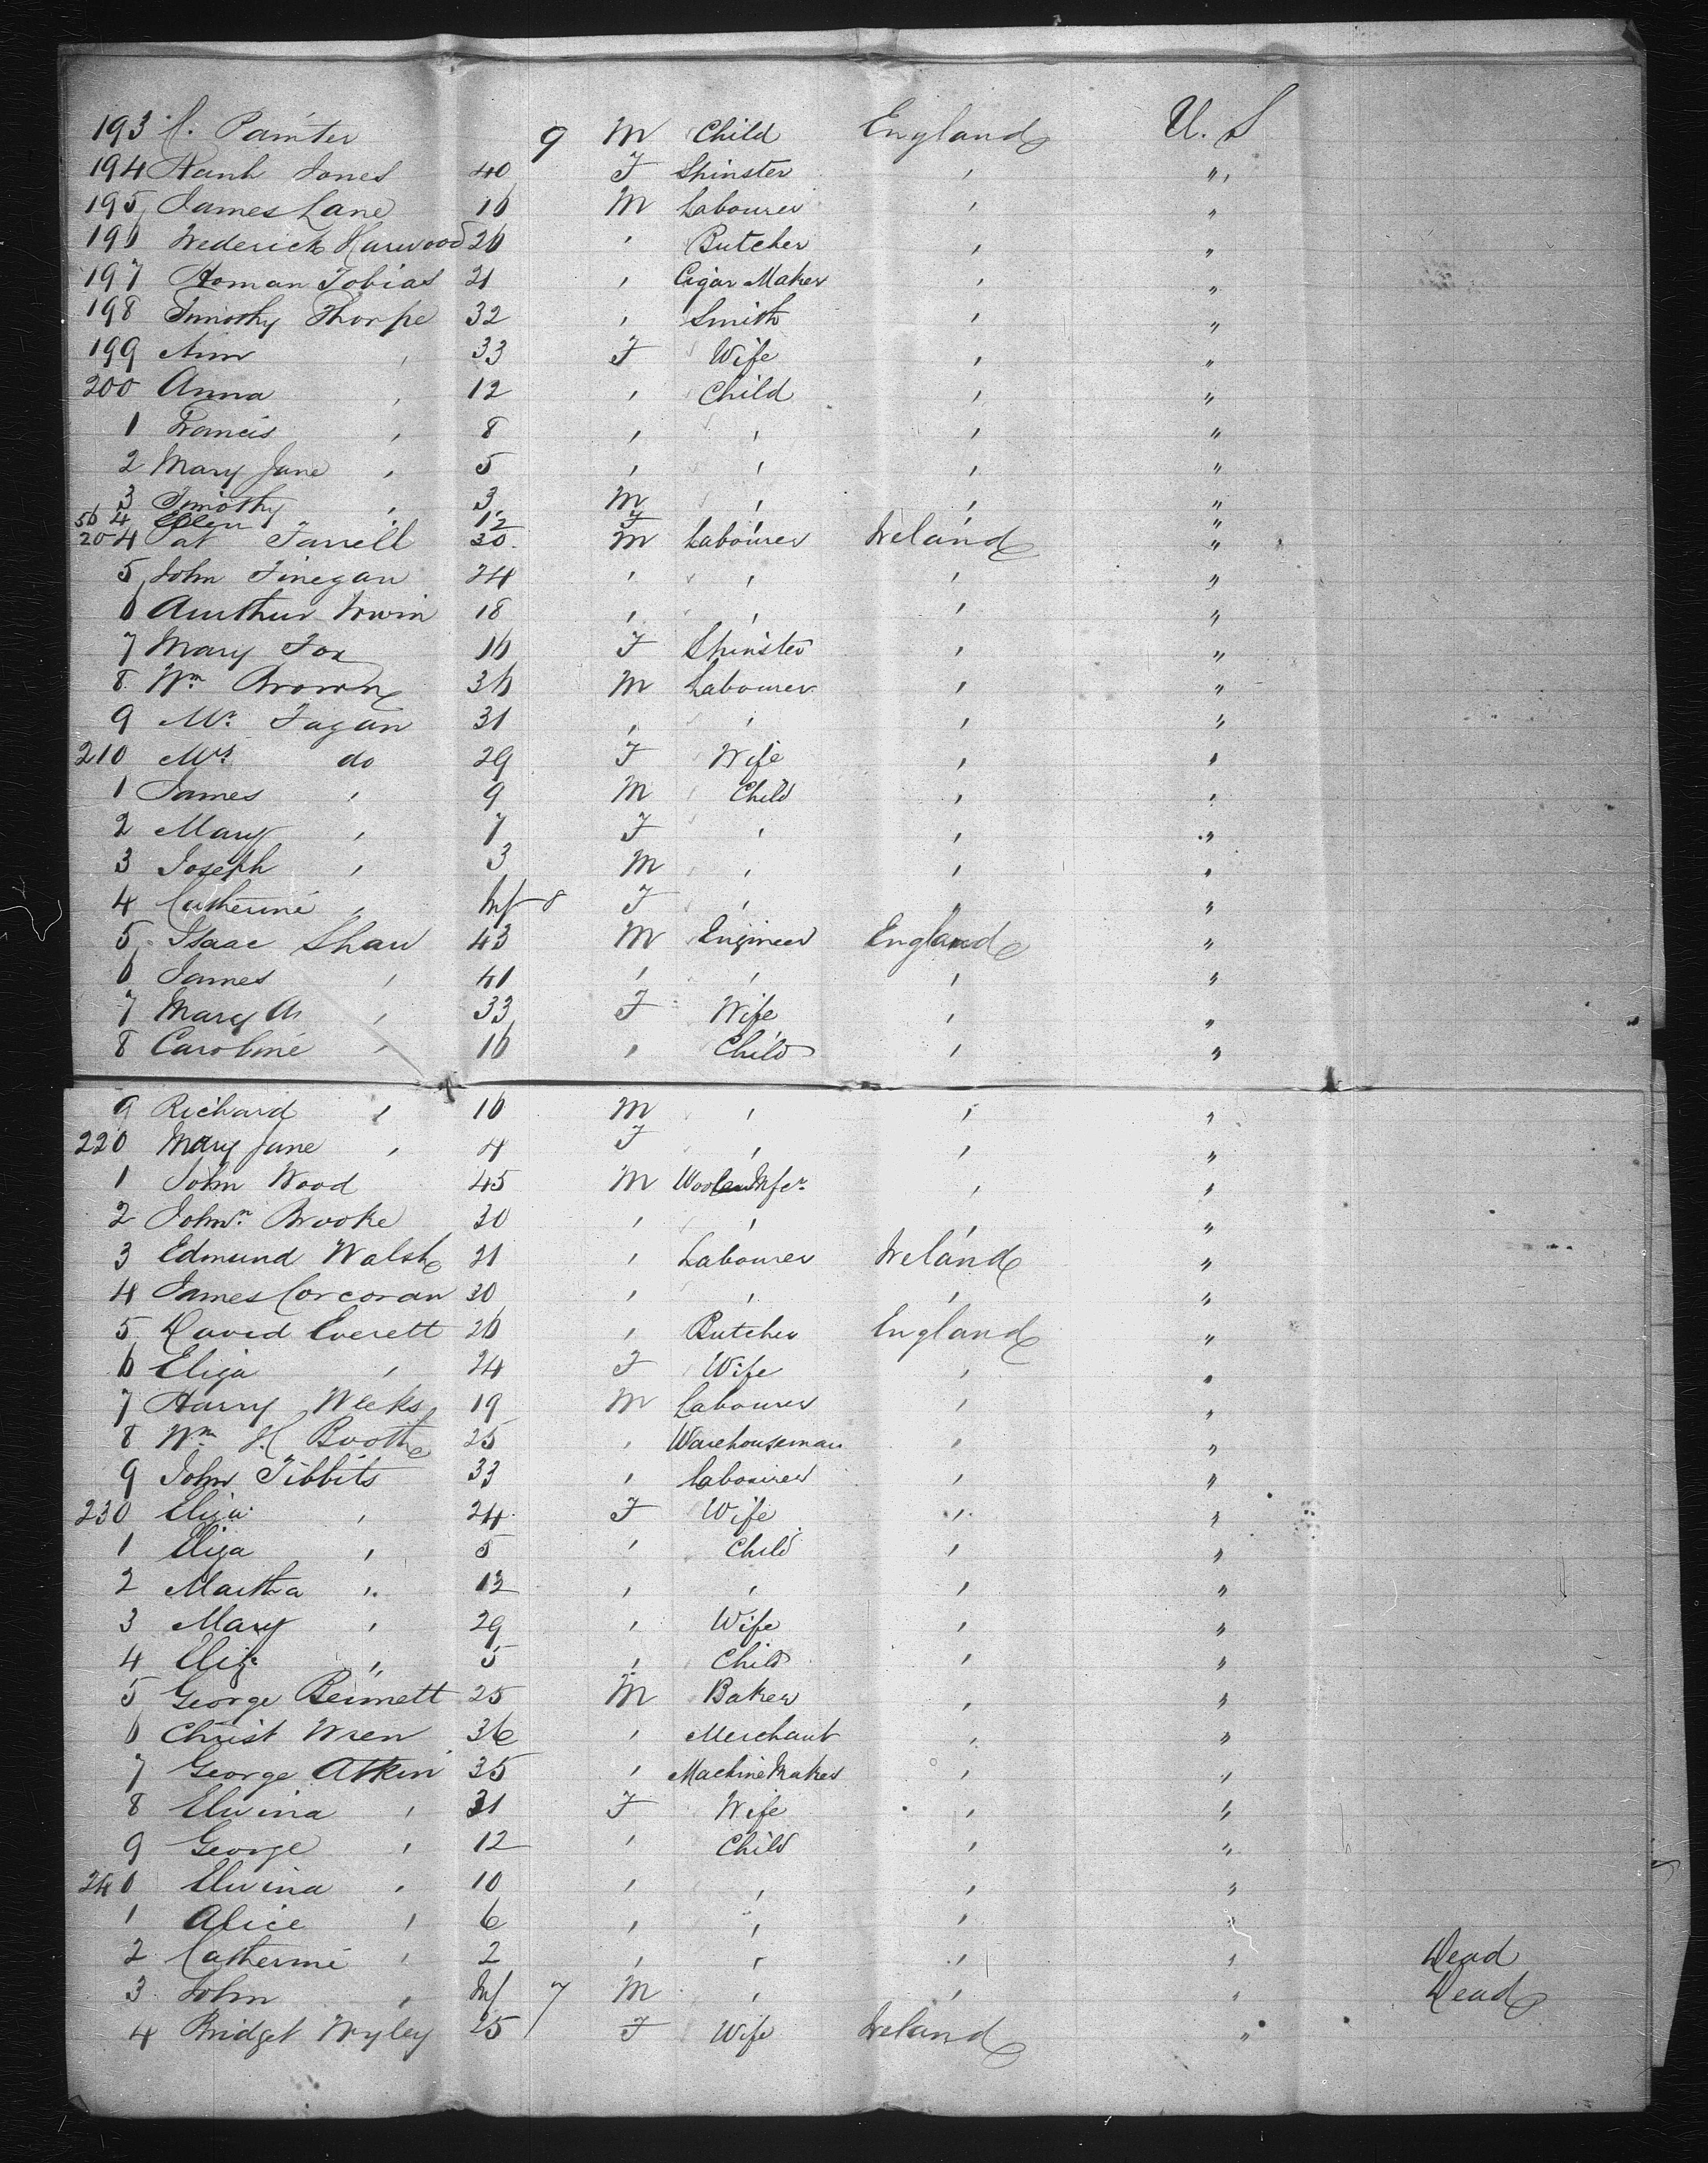 193 C. Painter 9 M Child England U. S
194 Hanh Jones 40 F Spinster ' "
195 James Lane 16 M Labourer ' "
196 Frederick Harwood 26 ' Butcher ' "
197 Homan Tobias 21 ' Cigar Maker ' "
198 Timothy Thorpe 32 ' Smith ' "
199 Ann ' 33 F Wife ' "
200 Anna ' 12 ' Child ' "
1 Francis ' 8 ' ' ' "
2 Mary Jane ' 5 ' ' ' "
3 Timothy ' 3 M ' ' "
56 4 Ellen ' 12 F ' ' "
204 Pat Farrell 30 M Labourer Ireland "
5 John Finegan 24 ' ' ' "
6 Aurthur Irwin 18 ' ' ' "
7 Mary Fox 16 F Spinster ' "
8 Wm Brown 36 M Labourer ' "
9 Mr. Fagan 31 ' ' ' "
210 Mrs do 29 F Wife ' "
1 James ' 9 M Child ' "
2 Mary ' 7 F ' ' "
3 Joseph ' 3 M ' ' "
4 Catherine ' Inf 8 F ' ' "
5 Isaac Shaw 43 M Engineer England "
6 James ' 41 ' ' ' "
7 Mary A ' 33 F Wife ' "
8 Caroline ' 16 ' Child ' "
9 Richard ' 16 M ' ' "
220 Mary Jane ' 4 F ' ' "
1 John Wood 45 M Woolen Mfcr ' "
2 Johnn Brooke 30 ' ' ' "
3 Edmund Walsh 21 ' Labourer Ireland "
4 James Corcoran 30 ' ' ' "
5 David Everett 26 ' Butcher England "
6 Eliza ' 24 F Wife ' "
7 Harry Weeks 19 M Labourer ' "
8 Wm H Booth 25 ' Warehouseman ' "
9 John Tibbits 33 ' Labourer ' "
230 Eliza ' 24 F Wife ' "
1 Eliza ' 5 ' Child ' "
2 Martha ' 12 ' ' ' "
3 Mary ' 29 ' Wife ' "
4 Eliz. " 5 ' Child ' "
5 George Bennett 25 M Baker ' "
6 Christ Wren 36 ' Merchant ' "
7 George Atkin 35 ' Machine Maker ' "
8 Elvina ' 31 F Wife ' "
9 George ' 12 ' Child ' "
240 Elvina ' 10 ' ' ' "
1 Alice ' 6 ' ' ' "
2 Catherine ' 2 ' ' ' " Dead
3 John ' Inf 7 M ' ' " Dead
4 Bridget Wyley 25 F Wife Ireland "